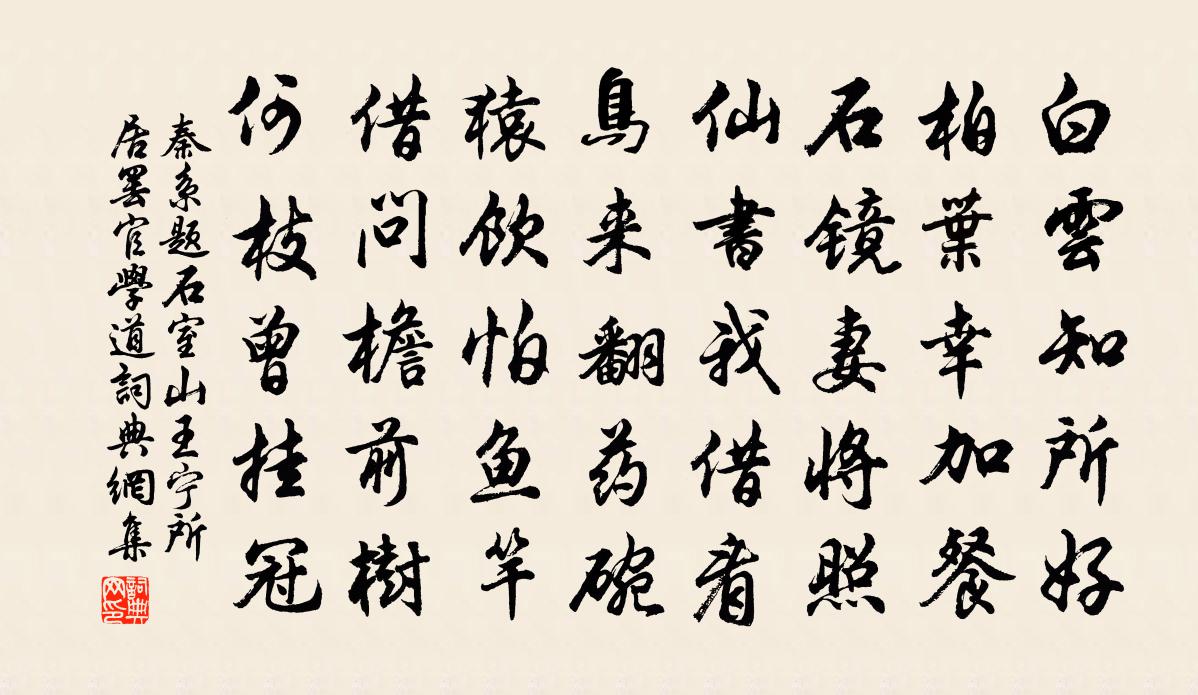 白雲知所好
柏葉幸加餐
石鏡妻將照
仙書我借看
鳥来翻药碗
猿飲怕魚竿
借問檐前樹
何枝曾挂冠
秦系題石室山王宁所
居罢官學道詞典網集
詞典网印